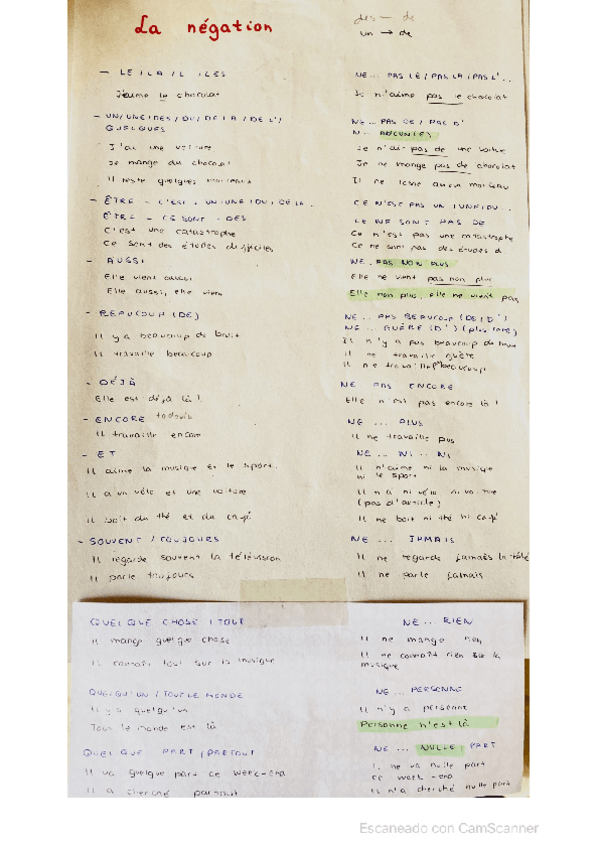 La négation
des → de
un → de
- LE / LA / L' / LES
NE... PAS LE / PAS LA / PAS L'...
J'aime le chocolat
Je n'aime pas le chocolat
- UN / UNE / DES / DU / DE LA / DE L' /
QUELQUES
NE... PAS DE / PAS D'
N... AUCUN(E)
J'ai une voiture
Je n'ai pas de une
Je mange du chocolat
Je ne mange pas de chocolat
Il reste quelques morceaux
Il ne reste aucun morceau
- ÊTRE - C'EST : UN / UNE / DU / DE LA...
CE N'EST PAS UN / UNE / DU...
ÊTRE - CE SONT - DES
CE NE SONT PAS DE
C'est une catastrophe
Ce n'est pas une catastrophe
Ce sont des études difficiles
Ce ne sont pas des études d.
- AUSSI
NE... PAS NON PLUS
Elle vient aussi
Elle ne vient pas non plus
Elle aussi, elle vient
Elle non plus, elle ne vient pas
- BEAUCOUP (DE)
NE... PAS BEAUCOUP (DE / D')
NE... GUÈRE (D')
Il y a beaucoup de bruit
Il n'y a pas beaucoup de bruit
Il travaille beaucoup
Il ne travaille guère
Il ne travaille pas beaucoup
- DÉJÀ
NE PAS ENCORE
Elle est déjà là !
Elle n'est pas encore là !
- ENCORE todavía
NE ... PLUS
Il travaille encore
Il ne travaille pus
- ET
NE ... NI ... NI
Il aime la musique et le sport.
Il n'aime ni la musique
ni le sport
Il a un vélo et une voiture
Il n'a ni vélo ni voiture
(pas d'article)
Il boit du thé et du café
Il ne boit ni thé ni café
- SOUVENT / TOUJOURS
NE ... JAMAIS
Il regarde souvent la télévision
Il ne regarde jamais la télé
Il parle toujours
Il ne parle jamais
QUELQUE CHOSE / TOUT
NE ... RIEN
Il mange quelque chose
Il ne mange rien
Il connaît tout sur la musique
Il ne connaît rien sur la
musique
QUELQU'UN / TOUT LE MONDE
NE ... PERSONNE
Il y a quelqu'un
Il n'y a personne
Tout le monde est là
Personne n'est là
QUELQUE PART / PARTOUT
NE ... NULLE PART
Il va quelque part ce week-end
Il ne va nulle part
ce week-end
Il a cherché partout
Il n'a cherché nulle part
Escaneado con CamScanner